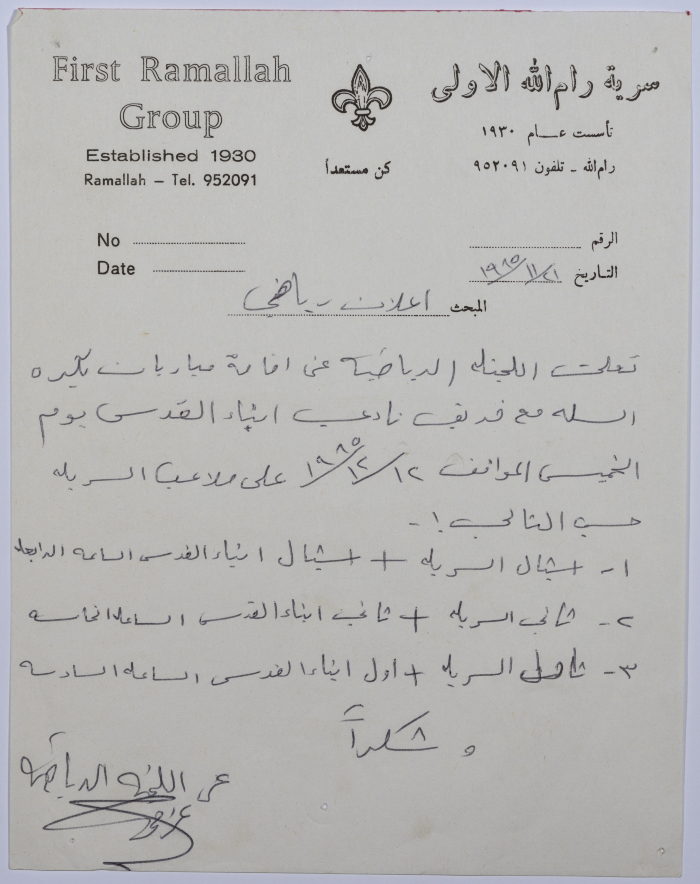 First Ramallah
Group
Established 1930
Ramallah – Tel. 952091
كن مستعداً
سرية رام الله الاولى
تأسست عام ١٩٣٠
رام الله - تلفون ٩٥٢٠٩١
No
Date
الرقم
التاريخ ١٩٨٥/١١/٢١
المبحث اعلان رياضي
تعلن اللجنة الرياضية عن اقامة مباريات بكرة
السله مع فريق نادي ابناء القدس يوم
الخميس الموافق ١٩٨٥/١٢/١٢ على ملاعب السريه
حسب التالي :-
١- اشبال السريه + اشبال ابناء القدس الساعه الرابعه
٢- ثاني السريه + ثاني ابناء القدس الساعه الخامسه
٣- اول السريه + اول ابناء القدس الساعه السادسه
و شكراً
عن اللجنة الرياضية